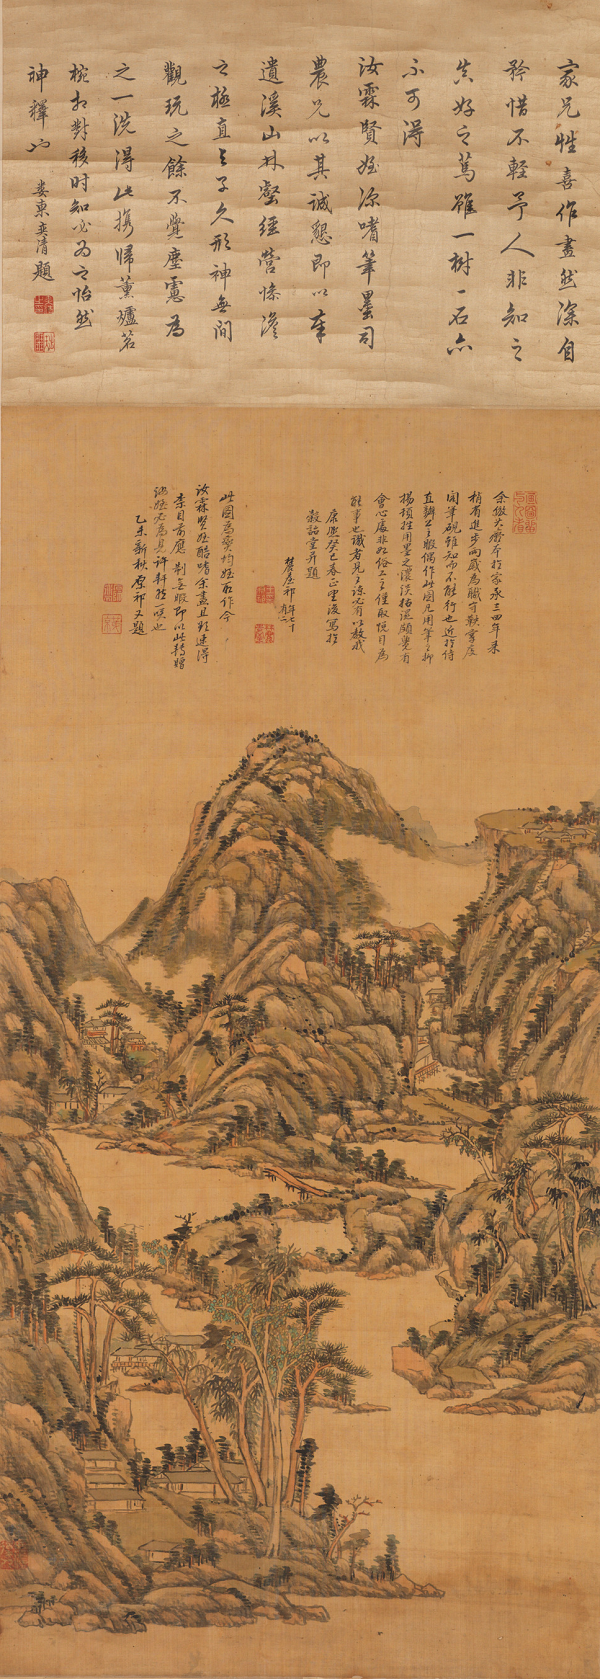 家兄性喜作畫然深自
矜惜不輕予人非知之
真好之篤雖一樹一石亦
不可得
汝霖賢姪深嗜筆墨司
農兄以其誠懇即以奉
遺溪山林壑經營慘澹
之極直與子久形神無間
觀玩之餘不覺塵慮為
之一洗得此攜歸薰爐茗
椀相對移時知必為之怡然
神釋也
婁東奕清題
余倣大癡本於家承三四年來
稍有進步而感為職守鞅掌度
閣筆硯雖知而不能行也近於侍
直辦公之暇偶作此圖凡用筆之抑
揚頓挫用墨之濃淡枯濕頗覺有
會心處非如俗工之僅取悅目為
能事也識者見之諒必有以教我
康熙癸巳春正望後寫於
穀詒堂并題
麓臺祁年七十有二
此圖為
賢姪所作今
汝霖賢姪酷嗜余畫且欲速得
李目前應制無暇即以此轉贈
汝姪必為見許料發一嘆也
乙未新秋原祁又題